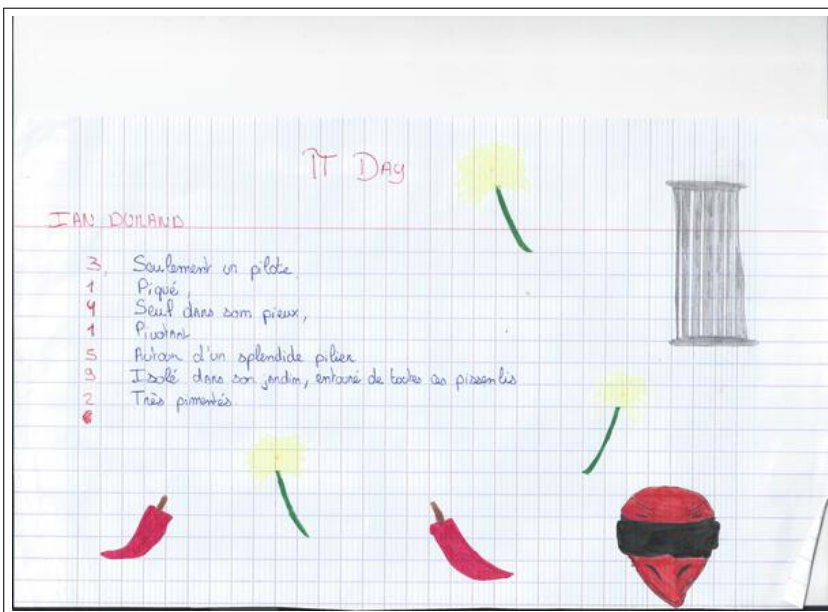 π Day
IAN DURAND
3, Seulement un pilote
1 Piqué,
4 Seul dans son pieux,
1 Pivotant
5 Autour d'un splendide pilier
9 Isolé dans son jardin, entouré de toutes ces pissenlis
2 Très pimentés.
6